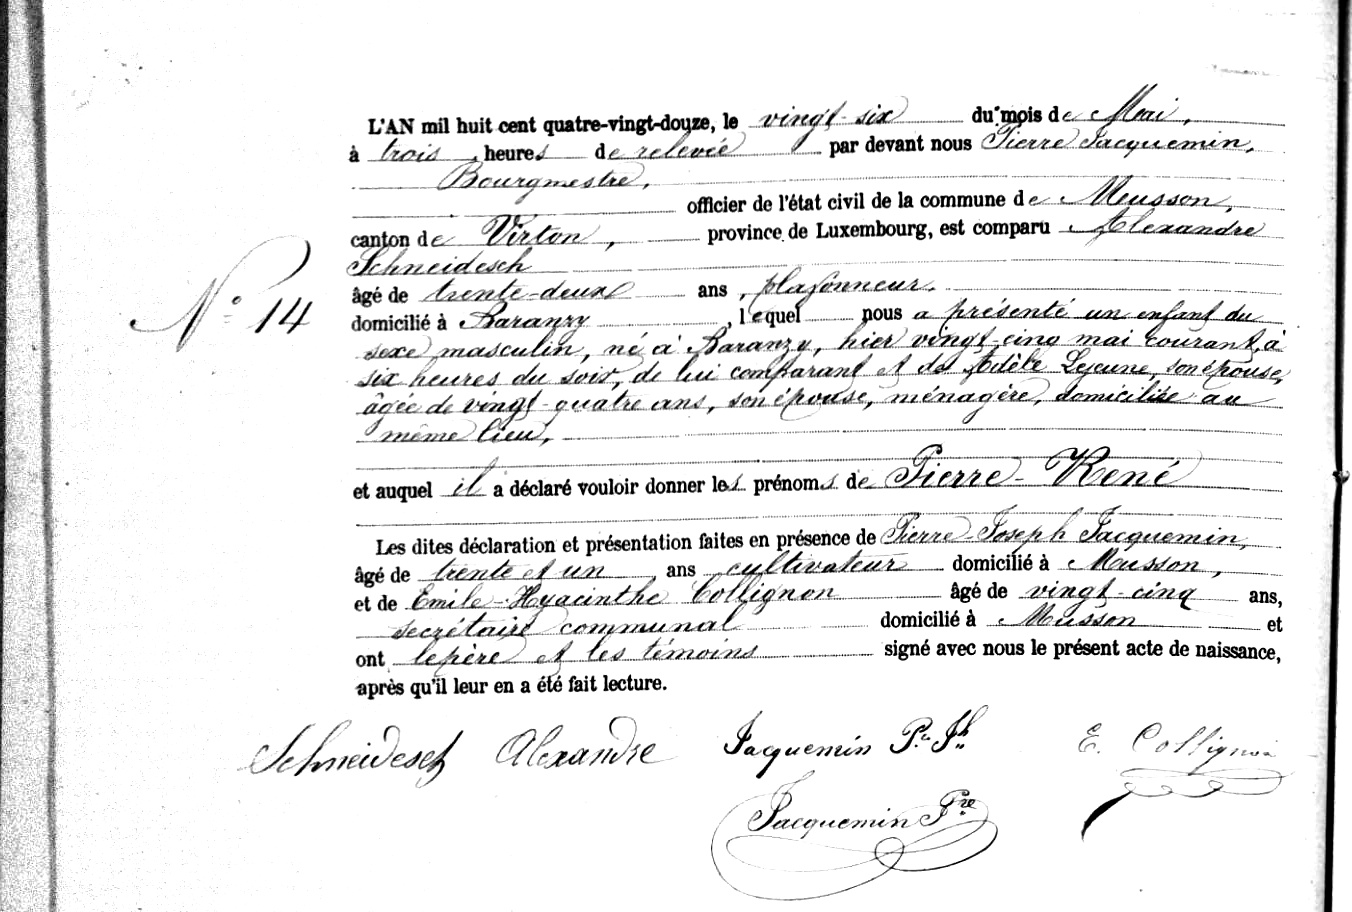 L'AN mil huit cent quatre-vingt-douze, le vingt-six du mois de Mai,
à trois heures de relevée par devant nous Pierre Jacquemin,
Bourgmestre,
officier de l'état civil de la commune de Musson,
canton de Virton, province de Luxembourg, est comparu Alexandre
Schneidesch
âgé de trente-deux ans, plafonneur,
N° 14
domicilié à Baranzy, lequel nous a présenté un enfant du
sexe masculin, né à Baranzy, hier vingt-cinq mai courant, à
six heures du soir, de lui comparant et de Adèle Lejeune, son épouse,
âgée de vingt-quatre ans, son épouse, ménagère, domiciliée au
même lieu,
et auquel il a déclaré vouloir donner les prénoms de Pierre-René
Les dites déclaration et présentation faites en présence de Pierre-Joseph Jacquemin,
âgé de trente et un ans cultivateur domicilié à Musson,
et de Emile-Hyacinthe Collignon âgé de vingt-cinq ans,
secrétaire communal domicilié à Musson et
ont le père et les témoins signé avec nous le présent acte de naissance,
après qu'il leur en a été fait lecture.
Schneidesch Alexandre Jacquemin Pre Jh E. Collignon
Jacquemin Pre